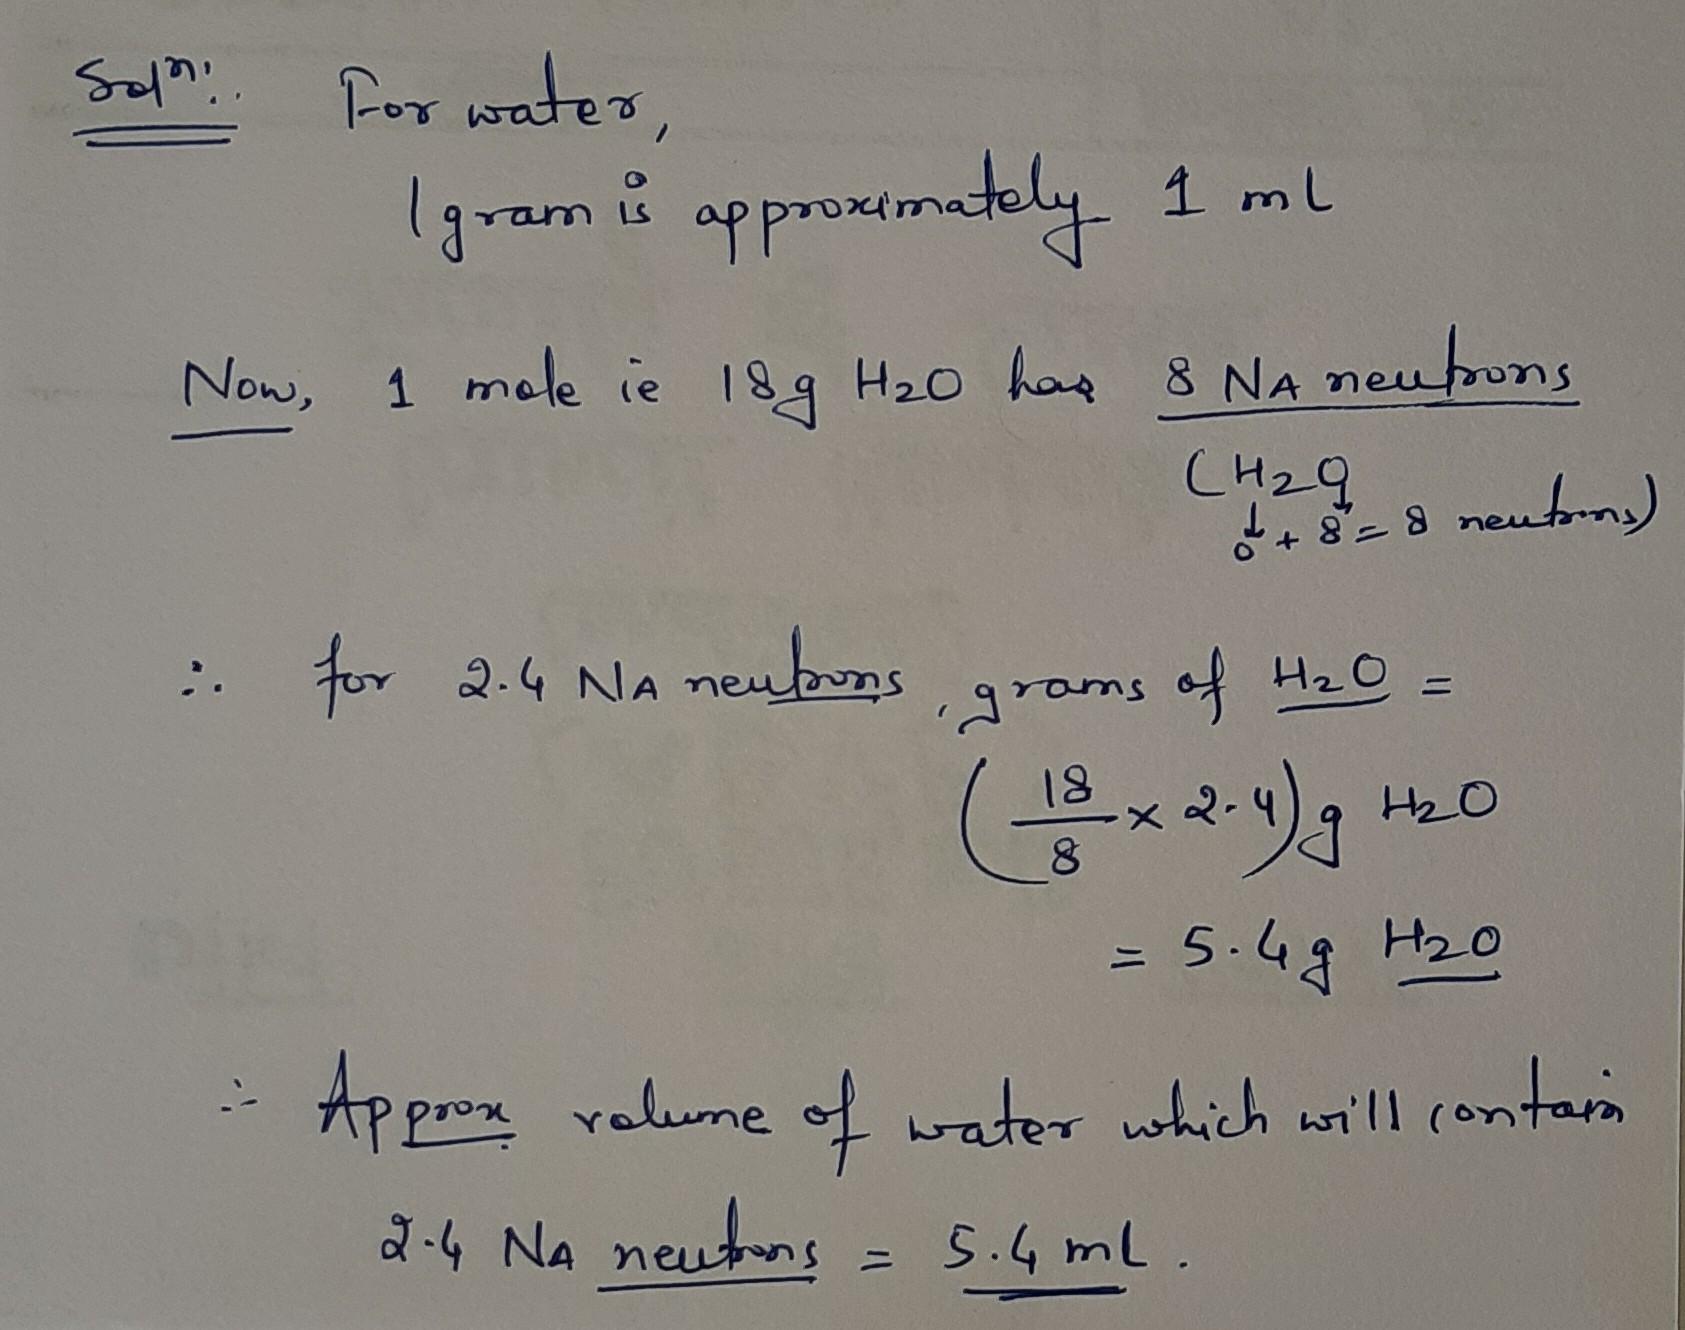 Solⁿ:. For water,
1 gram is approximately 1 ml
Now, 1 mole ie 18g H2O has 8 NA neutrons
(H2O
0 + 8 = 8 neutrons)
∴ for 2.4 NA neutrons, grams of H2O =
(18/8 × 2.4) g H2O
= 5.4g H2O
∴ Approx volume of water which will contain
2.4 NA neutrons = 5.4 mL.